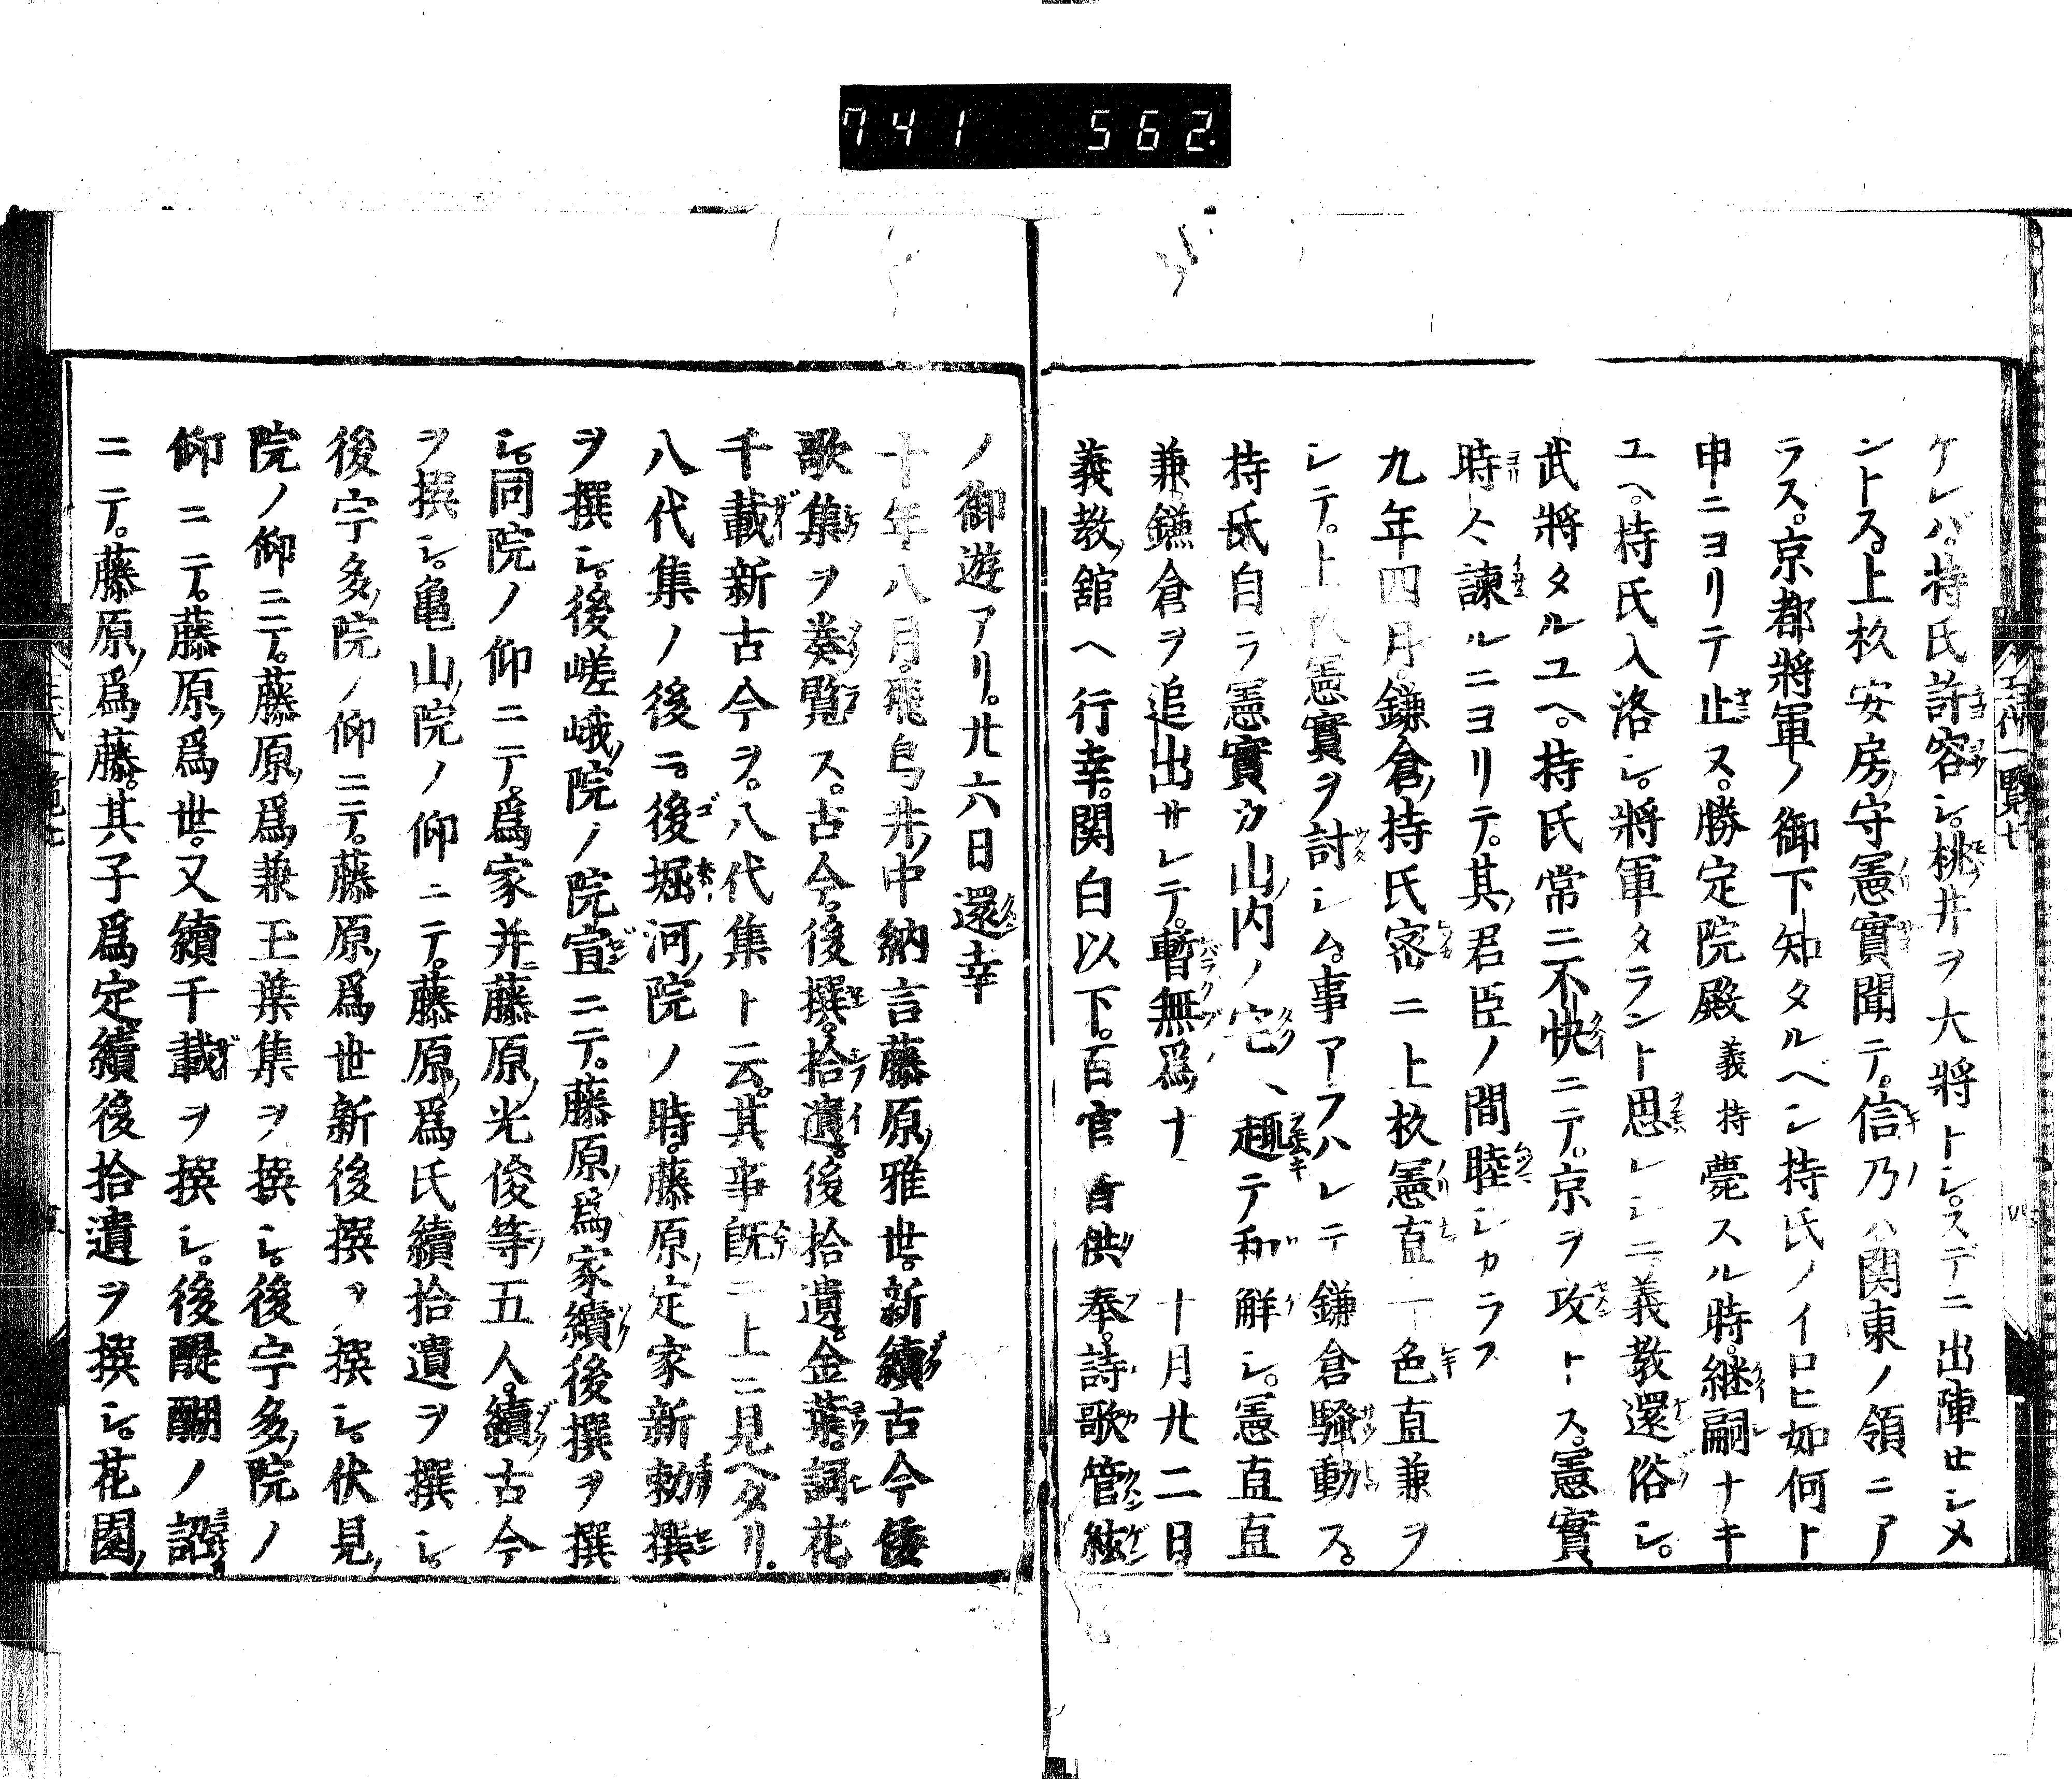 741 562
ケレバ。持氏許容シ。桃井ヲ大將トシ。スデニ出陣セシメ
ントス。上杦安房守憲實聞テ。信乃ハ関東ノ領ニア
ラズ。京都將軍ノ御下知タルベシ持氏ノイロヒ如何ト
申ニヨリテ止ヌ。勝定院殿義持薨スル時。継嗣ナキ
ユヘ。持氏入洛シ。將軍タラント思レシニ。義教還俗シ。
武將タルユヘ。持氏常ニ不快ニテ。京ヲ攻トス。憲實
時々諫ルニヨリテ。其君臣ノ間睦シカラス
九年四月。鎌倉持氏密ニ上杦憲直一色直兼ヲ
シテ。上杦憲實ヲ討シム。事アラハレテ鎌倉騷動ス。
持氏自ラ憲實ガ山内ノ宅ヘ趣テ和解シ。憲直直
兼鎌倉ヲ追出サレテ。暫無爲ナ 十月廿二日
義教館ヘ行幸。関白以下。百官皆供奉。詩歌管絃
ノ御遊アリ。廿六日還幸
十年八月。飛鳥井中納言藤原雅世。新續古今倭
歌集ヲ奏覧ス。古今。後撰。拾遺。後拾遺。金葉。詞花
千載新古今ヲ。八代集ト云。其事既ニ上ニ見ヘタリ。
八代集ノ後ニ。後堀河院ノ時。藤原定家新勅撰
ヲ撰シ。後嵯峨院ノ院宣ニテ。藤原爲家續後撰ヲ撰
シ。同院ノ仰ニテ。爲家并藤原光俊等五人。續古今
ヲ撰シ。亀山院ノ仰ニテ。藤原爲氏續拾遺ヲ撰シ。
後宇多院ノ仰ニテ。藤原爲世新後撰ヲ撰シ。伏見
院ノ仰ニテ。藤原爲兼玉葉集ヲ撰シ。後宇多院ノ
仰ニテ。藤原爲世。又續千載ヲ撰シ。後醍醐ノ詔
ニテ。藤原爲藤。其子爲定續後拾遺ヲ撰シ。花園